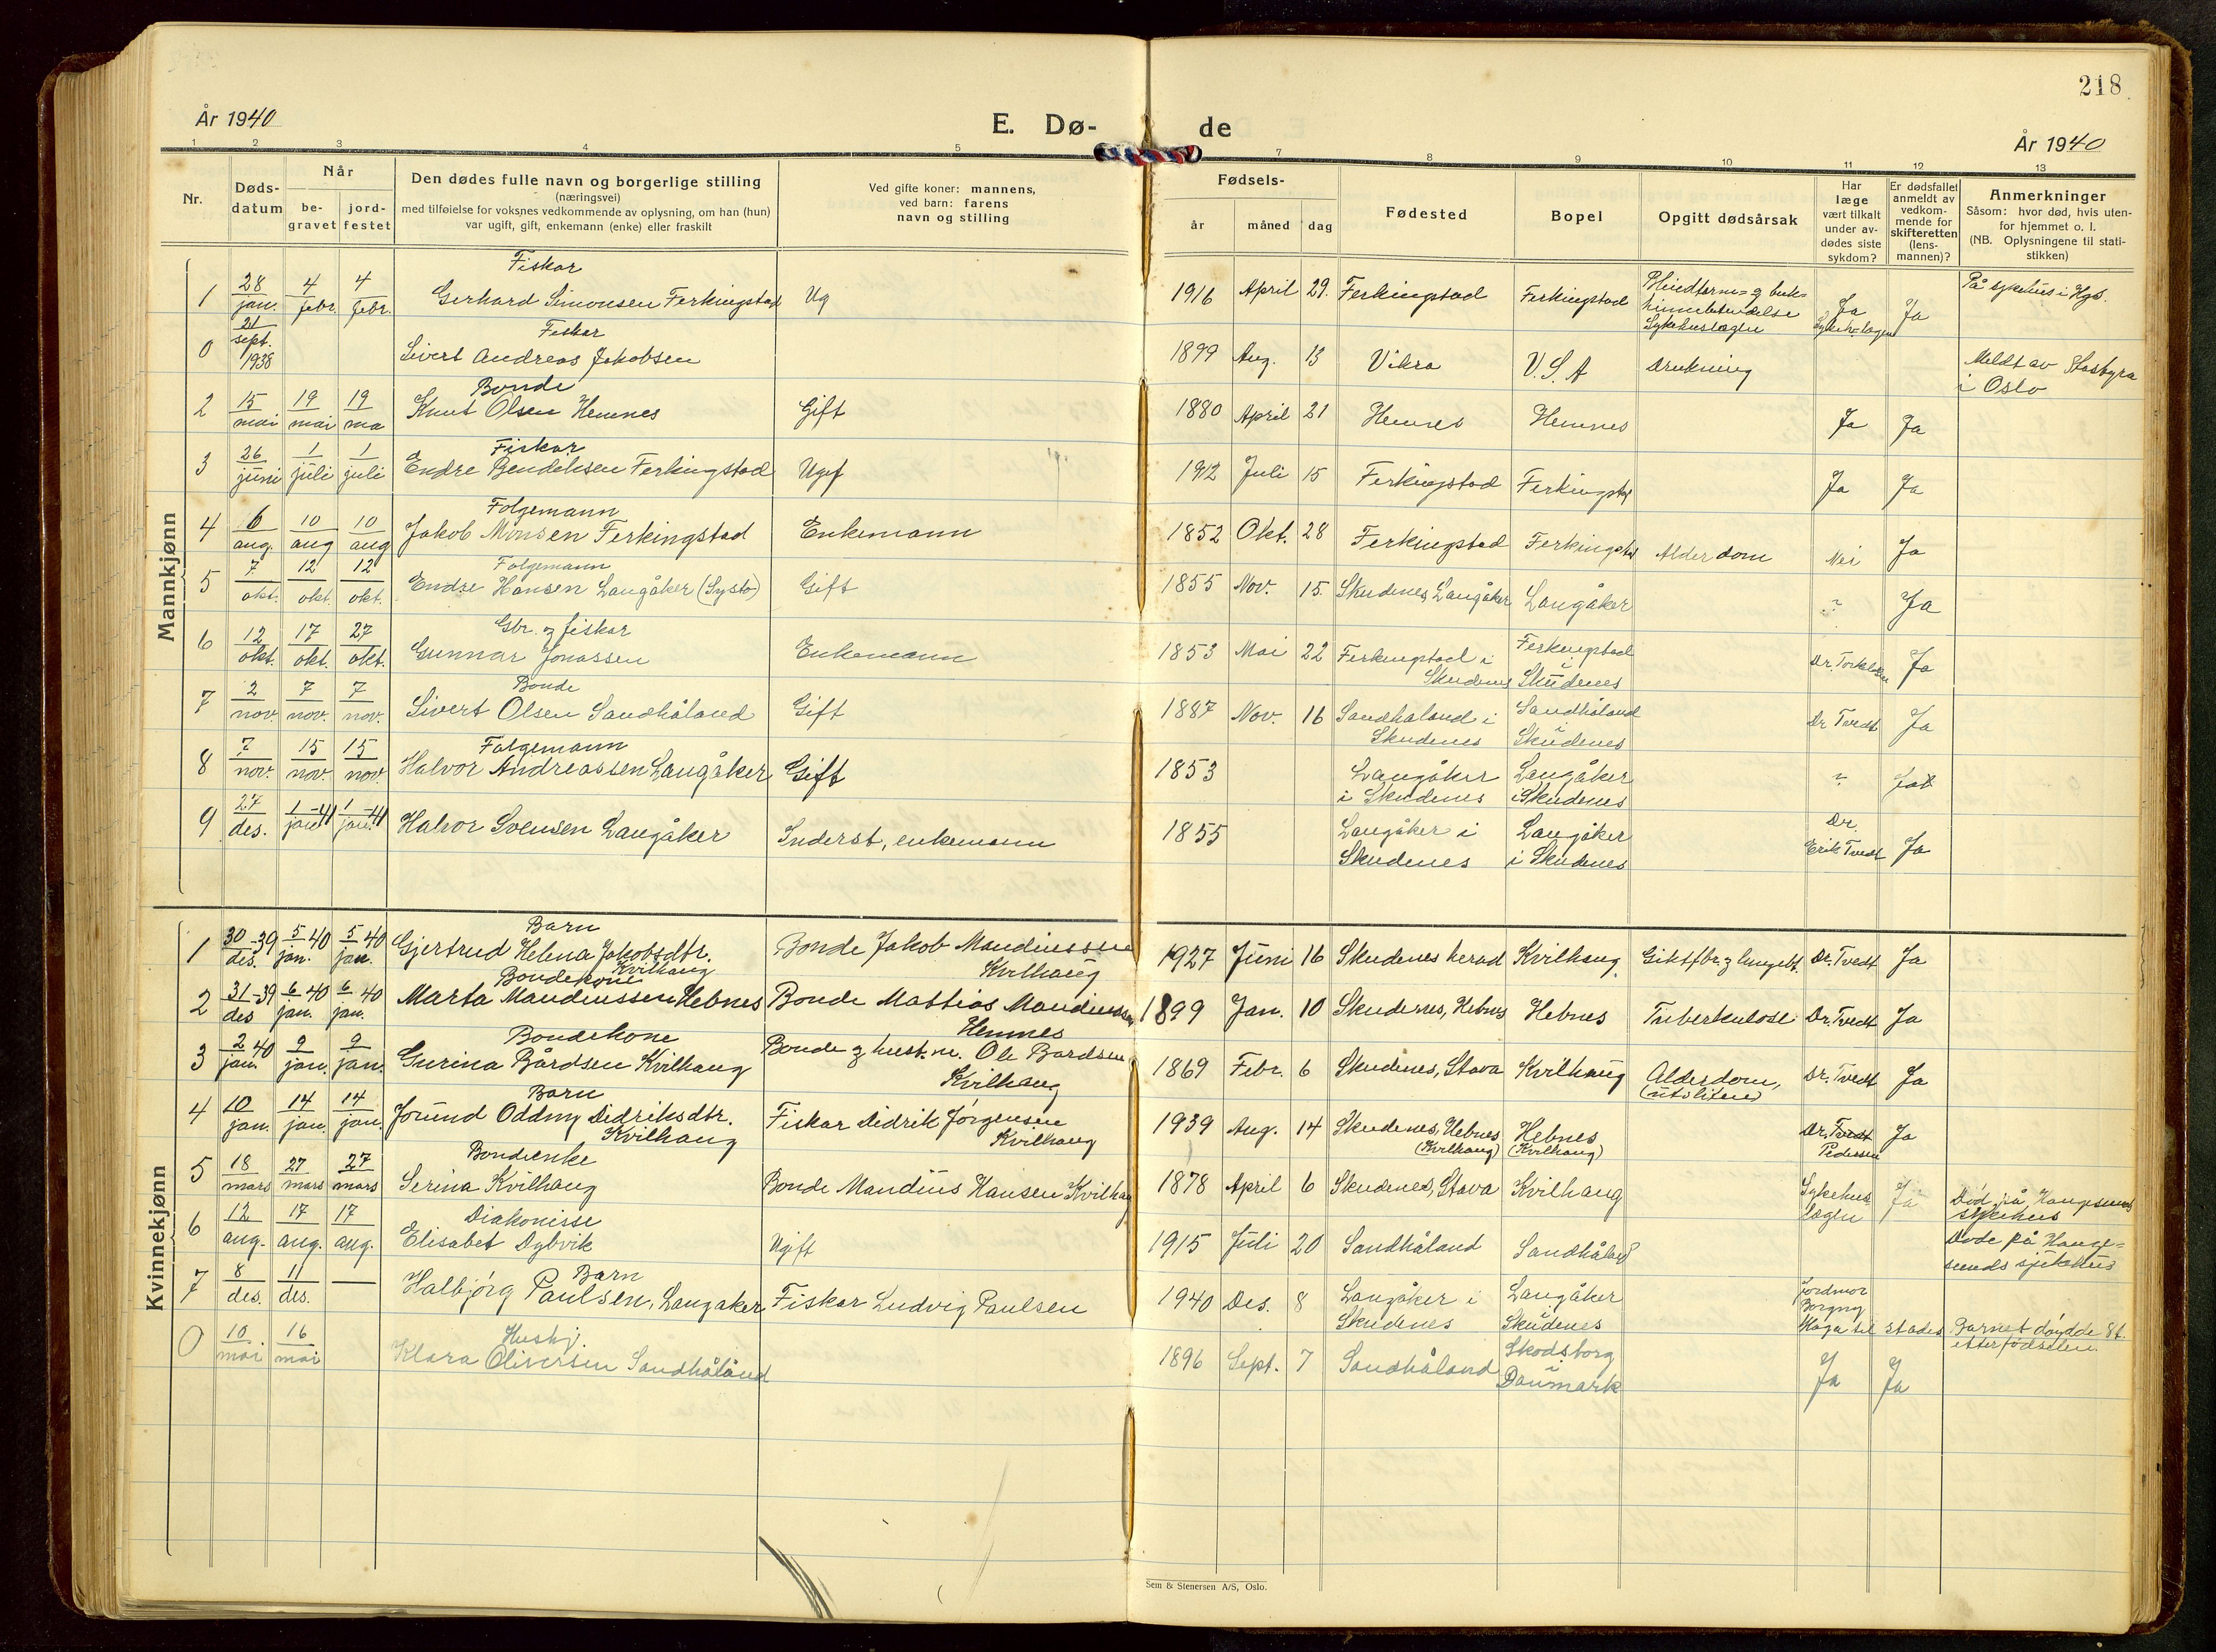 218
År 1940
E. Dø-
de
År 1940
1 2 3 4 5 7 8 9 10 11 12 13
Nr.
Døds-
datum
Når
be-
gravet
jord-
festet
Den dødes fulle navn og borgerlige stilling
(næringsvei)
med tilføielse for voksnes vedkommende av oplysning, om han (hun)
var ugift, gift, enkemann (enke) eller fraskilt
Ved gifte koner: mannens,
ved barn: farens
navn og stilling
Fødsels-
år måned dag
Fødested
Bopel
Opgitt dødsårsak
Har
læge
vært tilkalt
under av-
dødes siste
sykdom?
Er dødsfallet
anmeldt av
vedkom-
mende for
skifteretten
(lens-
mannen)?
Anmerkninger
Såsom: hvor død, hvis uten-
for hjemmet o. l.
(NB. Oplysningene til stati-
stikken)
Mannkjønn
Fiskar
1 28 jan. 4 febr. 4 febr. Gerhard Simonsen Ferkingstad Ug 1916 April 29. Ferkingstad Ferkingstad Blindtarm- og buk- Ja Ja På sykehus i Hgs.
Sykehuslægen
Fiskar
0 21 sept. 1938 Sivert Andreas Jakobsen 1899 Aug. 13 Vikra U.S.A Drukning Meldt av
i Oslo
Bonde
2 15 mai 19 mai 19 ma Knut Olsen Hemnes Gift 1880 April 21 Hemnes Hemnes Ja Ja
Fiskar
3 26 juni 1 juli 1 juli Endre Bendiksen Ferkingstad Ugif 1912 Juli 15 Ferkingstad Ferkingst Ja Ja
Folgemann
4 6 aug. 10 aug 10 aug Jakob Monsen Ferkingstad Enkemann 1852 Okt. 28 Ferkingstad Ferkingstad Alderdom Nei Ja
Folgemann
5 7 okt. 12 okt. 12 okt. Endre Hansen Langåker (Systo) Gift 1855 Nov. 15. Skudenes, Langåker Langåker ? Ja
Gbr. og fiskar
6 12 okt. 17 okt. 27 okt. Gunnar Jonassen Enkemann 1853 Mai 22 Ferkingstad i Skudenes Ferkingstad i Skudenes Dr. Torkelsen Ja
Bonde
7 2 nov. 7 nov. 7 nov. Sivert Olsen Sandhåland Gift 1887 Nov. 16 Sandhåland i Skudenes Sandhåland i Skudenes Dr Tvedt Ja
Folgemann
8 7 nov. 15 nov. 15 nov Halvor Andreassen Langåker Gift 1853 Langåker i Skudenes Langåker i Skudenes ? Ja
9 27 des. 1 jan -41 1 jan. -41 Halvor Svensen Langåker Inderst, enkemann 1855 Langåker i Skudenes Langåker i Skudenes Dr. Erik Tvedt Ja
Kvinnekjønn
Barn
1 30 des. -39 5 jan. 40 5 jan. 40 Gjertrud Helena Jakobsdtr. Kvilhaug Bonde Jakob Mandiussen Kvilhaug 1927 Juni 16 Skudenes herad Kvilhaug Giktfbr. og lungebt. Dr. Tvedt Ja
Bondekone
2 31 des -39 6 jan. 40 6 jan. 40 Marta Mandiussen Hebnes Bonde Mattias Mandiussen Hemnes 1899 Jan. 10 Skudenes, Hebnes Hebnes Tuberkulose Dr. Tvedt Ja
Bondekone
3 2 jan. 40 9 jan. 9 jan. Gurina Bårdsen Kvilhaug Bonde og hust.m. Ole Bardsen Kvilhaug 1869 Febr. 6 Skudenes, Stava Kvilhaug Alderdom, (utsliten) Dr. Tvedt Ja
Barn
4 10 jan. 14 jan. 14 jan. Jorund Oddny Didriksdtr. Kvilhaug Fiskar Didrik Jørgensen Kvilhaug 1939 Aug. 14 Skudenes, Hebnes (Kvilhaug) Hebnes (Kvilhaug) Dr. Tvedt Pedersen Ja
Bondeenke
5 18 mars 27 mars 27 mars Serina Kvilhaug Bonde Mandius Hansen Kvilhaug 1878 April 6 Skudenes, Stava Kvilhaug Sykehus lægen Ja Død på Haugesunds sykehus
Diakonisse
6 12 aug. 17 aug. 17 aug. Elisabet Dybvik Ugift 1915 Juli 20 Sandhåland Sandhåland Døde på Hauge-
sunds sjukehus
Barn
7 8 des. 11 des. — Halbjørg Paulsen, Langaker Fiskar Ludvig Paulsen 1940 Des. 8 Langåker i Skudenes Langåker i Skudenes Jordmor Borgny Haga til stades Barnet døydde 8 t. etter fødselen.
Hushj.
0 10 mai 16 mai Klara Oliversen Sandhåland 1896 Sept. 7 Sandhåland Skodsborg i Danmark Ja Ja
Sem & Stenersen A/S, Oslo.